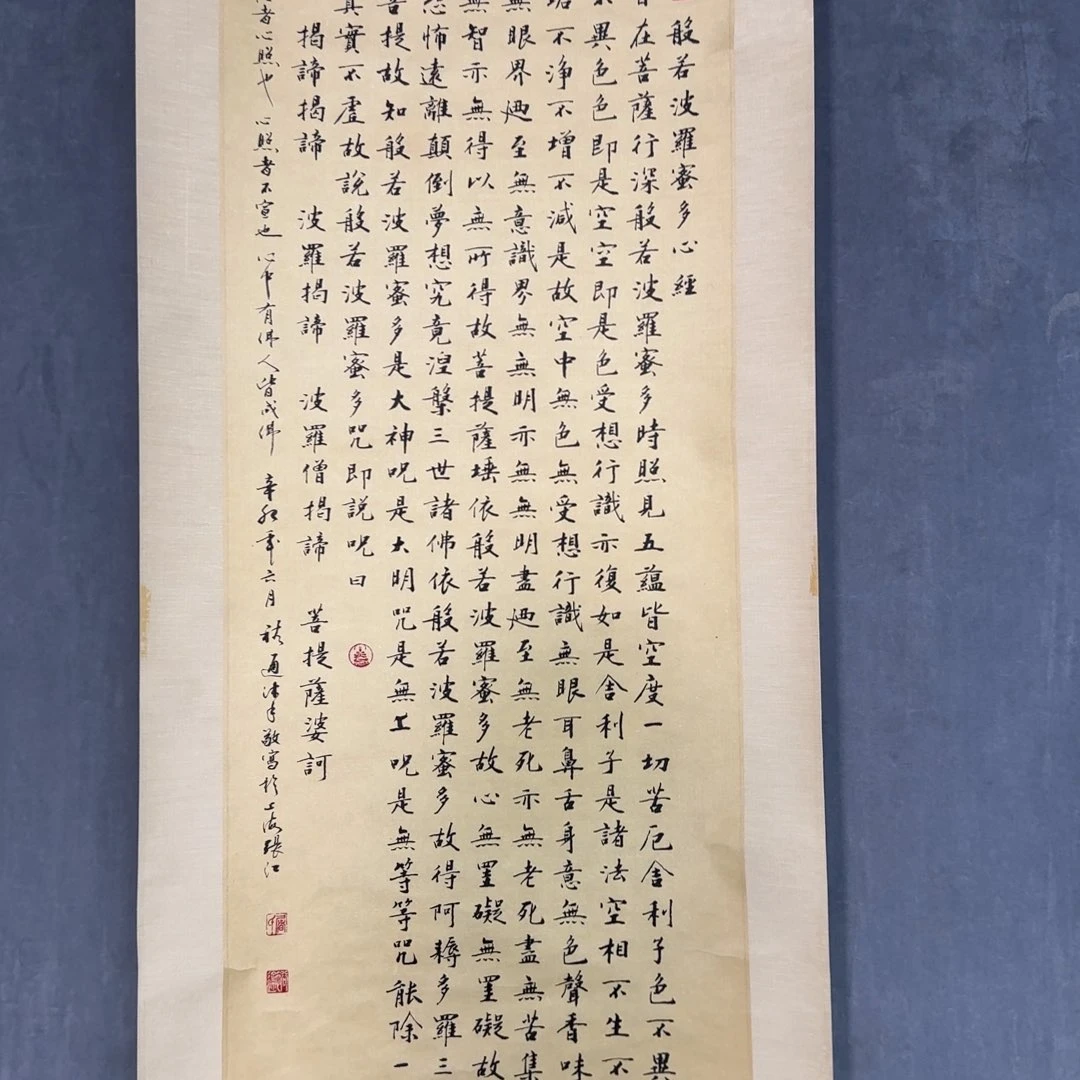 般若波羅蜜多心經
在菩薩行深般若波羅蜜多時照見五蘊皆空度一切苦厄舍利子色不異
不異色色即是空空即是色受想行識亦復如是舍利子是諸法空相不生不
垢不淨不增不減是故空中無色無受想行識無眼耳鼻舌身意無色聲香味
無眼界廼至無意識界無無明亦無無明盡廼至無老死亦無老死盡無苦集
無智亦無得以無所得故菩提薩埵依般若波羅蜜多故心無罣礙無罣礙故
恐怖遠離顛倒夢想究竟涅槃三世諸佛依般若波羅蜜多故得阿耨多羅三
菩提故知般若波羅蜜多是大神咒是大明咒是無上咒是無等等咒能除一
真實不虛故說般若波羅蜜多咒即說咒曰
揭諦揭諦 波羅揭諦 波羅僧揭諦 菩提薩婆訶
者心照也 心照者不宣也 心中有佛人皆成佛 辛卯年六月 敬寫於上海張江